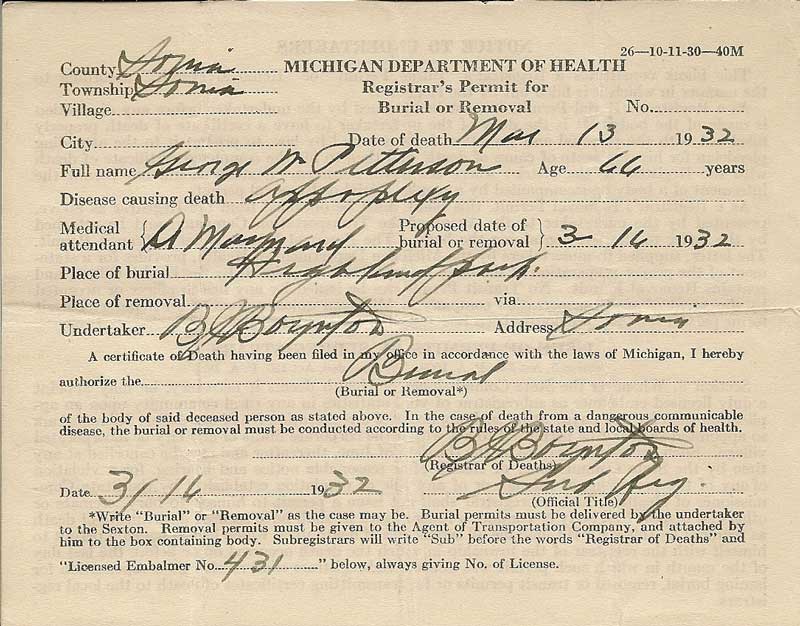 26—10-11-30—40M
County Ionia MICHIGAN DEPARTMENT OF HEALTH
Township Ionia Registrar's Permit for
Village Burial or Removal No.
City Date of death Mar 13 1932
Full name George W Petterson Age 66 years
Disease causing death Appoplexy
Medical attendant { A Maynard Proposed date of burial or removal } 3 16 1932
Place of burial Highland park.
Place of removal via
Undertaker B Boynton Address Ionia
A certificate of Death having been filed in my office in accordance with the laws of Michigan, I hereby
authorize the Burial
(Burial or Removal*)
of the body of said deceased person as stated above. In the case of death from a dangerous communicable
disease, the burial or removal must be conducted according to the rules of the state and local boards of health.
B Boynton
(Registrar of Deaths)
Date 3/16 1932 Sub Reg.
(Official Title)
*Write "Burial" or "Removal" as the case may be. Burial permits must be delivered by the undertaker
to the Sexton. Removal permits must be given to the Agent of Transportation Company, and attached by
him to the box containing body. Subregistrars will write "Sub" before the words "Registrar of Deaths" and
"Licensed Embalmer No. 431 " below, always giving No. of License.